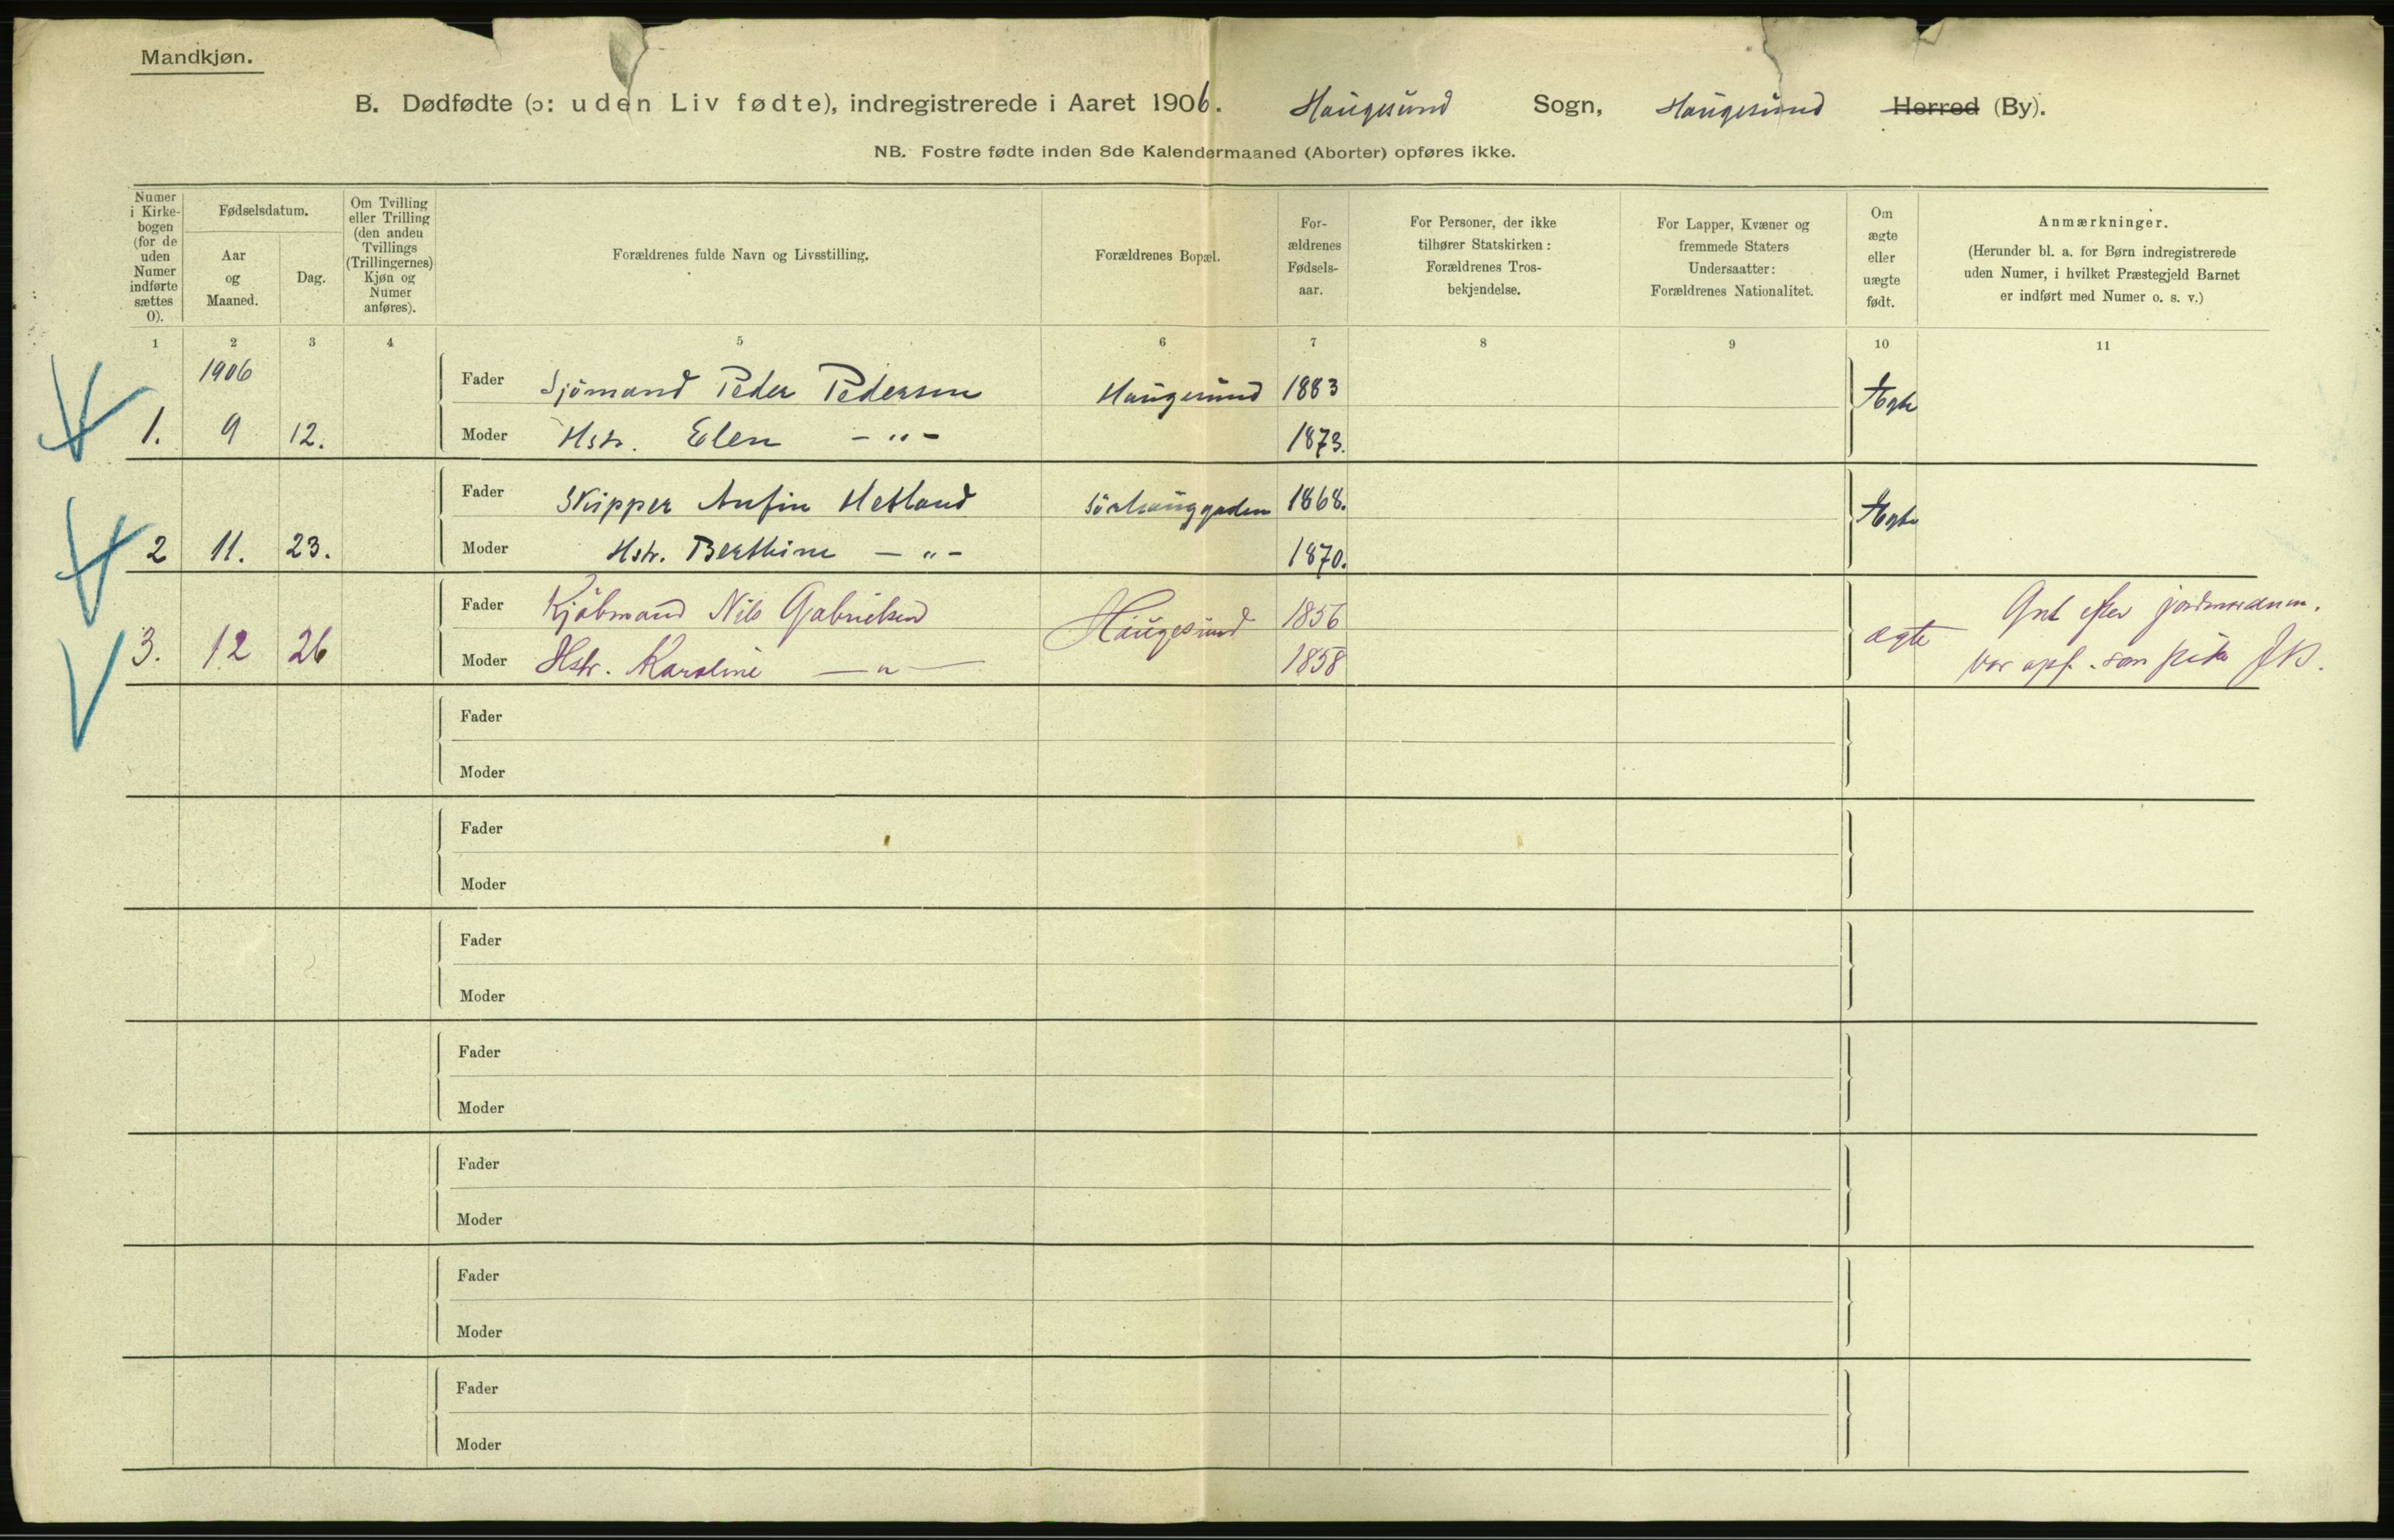 Mandkjøn.
B. Dødfødte (ɔ: uden Liv fødte), indregistrerede i Aaret 1906. Haugesund Sogn, Haugesund Herred (By).
NB. Fostre fødte inden 8de Kalendermaaned (Aborter) opføres ikke.
Numer i Kirkebogen (for de uden Numer indførte sættes 0).
Fødselsdatum.
Aar og Maaned.
Dag.
Om Tvilling eller Trilling (den anden Tvillings (Trillingernes) Kjøn og Numer anføres).
Forældrenes fulde Navn og Livsstilling.
Forældrenes Bopæl.
Forældrenes Fødselsaar.
For Personer, der ikke tilhører Statskirken: Forældrenes Trosbekjendelse.
For Lapper, Kvæner og fremmede Staters Undersaatter: Forældrenes Nationalitet.
Om ægte eller uægte født.
Anmærkninger.
(Herunder bl. a. for Børn indregistrerede uden Numer, i hvilket Præstegjeld Barnet er indført med Numer o. s. v.)
1 2 3 4 5 6 7 8 9 10 11
1906
Fader Sjömand Peder Pedersen Haugesund 1883 Ægte
1. 9 12. Moder Hstr. Elen - " - 1873.
Fader Skipper Anfin Hetland Sörhauggaden 1868. Ægte
2 11. 23. Moder Hstr. Berthine - " - 1870.
Fader Kjöbmand Nils Gabrielsen Haugesund 1856 ægte
3. 12 26 Moder Hstr. Karoline - " - 1858
efter jordmoderen.
Var opf. som pike JB.
Fader
Moder
Fader
Moder
Fader
Moder
Fader
Moder
Fader
Moder
Fader
Moder
Fader
Moder